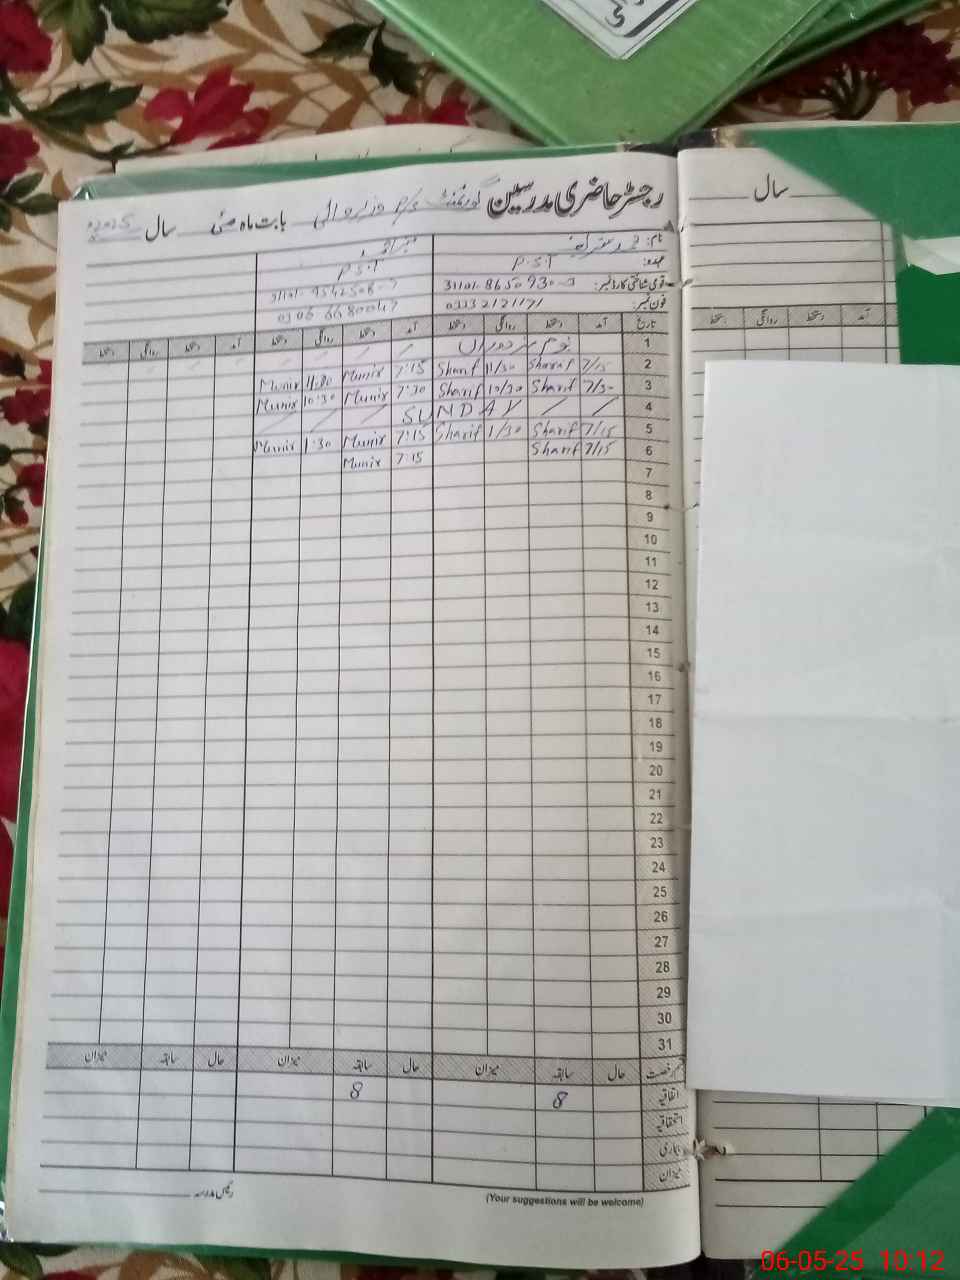 رجسٹر حاضری مدرسین گورنمنٹ P/S وزیر والی بابت ماہ مئی سال 2025ء
سال
نام: محمد شریف
عہدہ: P.S.T P.S.T
قومی شناختی کارڈ نمبر:
فون نمبر: 03132121171 0306 6680047
تاریخ آمد دستخط روانگی دستخط آمد دستخط روانگی دستخط آمد دستخط روانگی دستخط
آمد دستخط روانگی دستخط
1 یوم مزدوراں
2 7/15 Sharif 11/30 Sharif 7:15 Munir 11:30 Munir
3 7/30 Sharif 10/30 Sharif 7:30 Munir 10:30 Munir
4 SUNDAY
5 7/15 Sharif 1/30 Sharif 7:15 Munir 1:30 Munir
6 7/15 Sharif 7:15 Munir
7
8
9
10
11
12
13
14
15
16
17
18
19
20
21
22
23
24
25
26
27
28
29
30
31
قسم رخصت حال سابقہ میزان حال سابقہ میزان حال سابقہ میزان
اتفاقیہ 8 8
استحقاقیہ
بیماری
میزان
رئیس مدرسہ
(Your suggestions will be welcome)
06-05-25 10:12